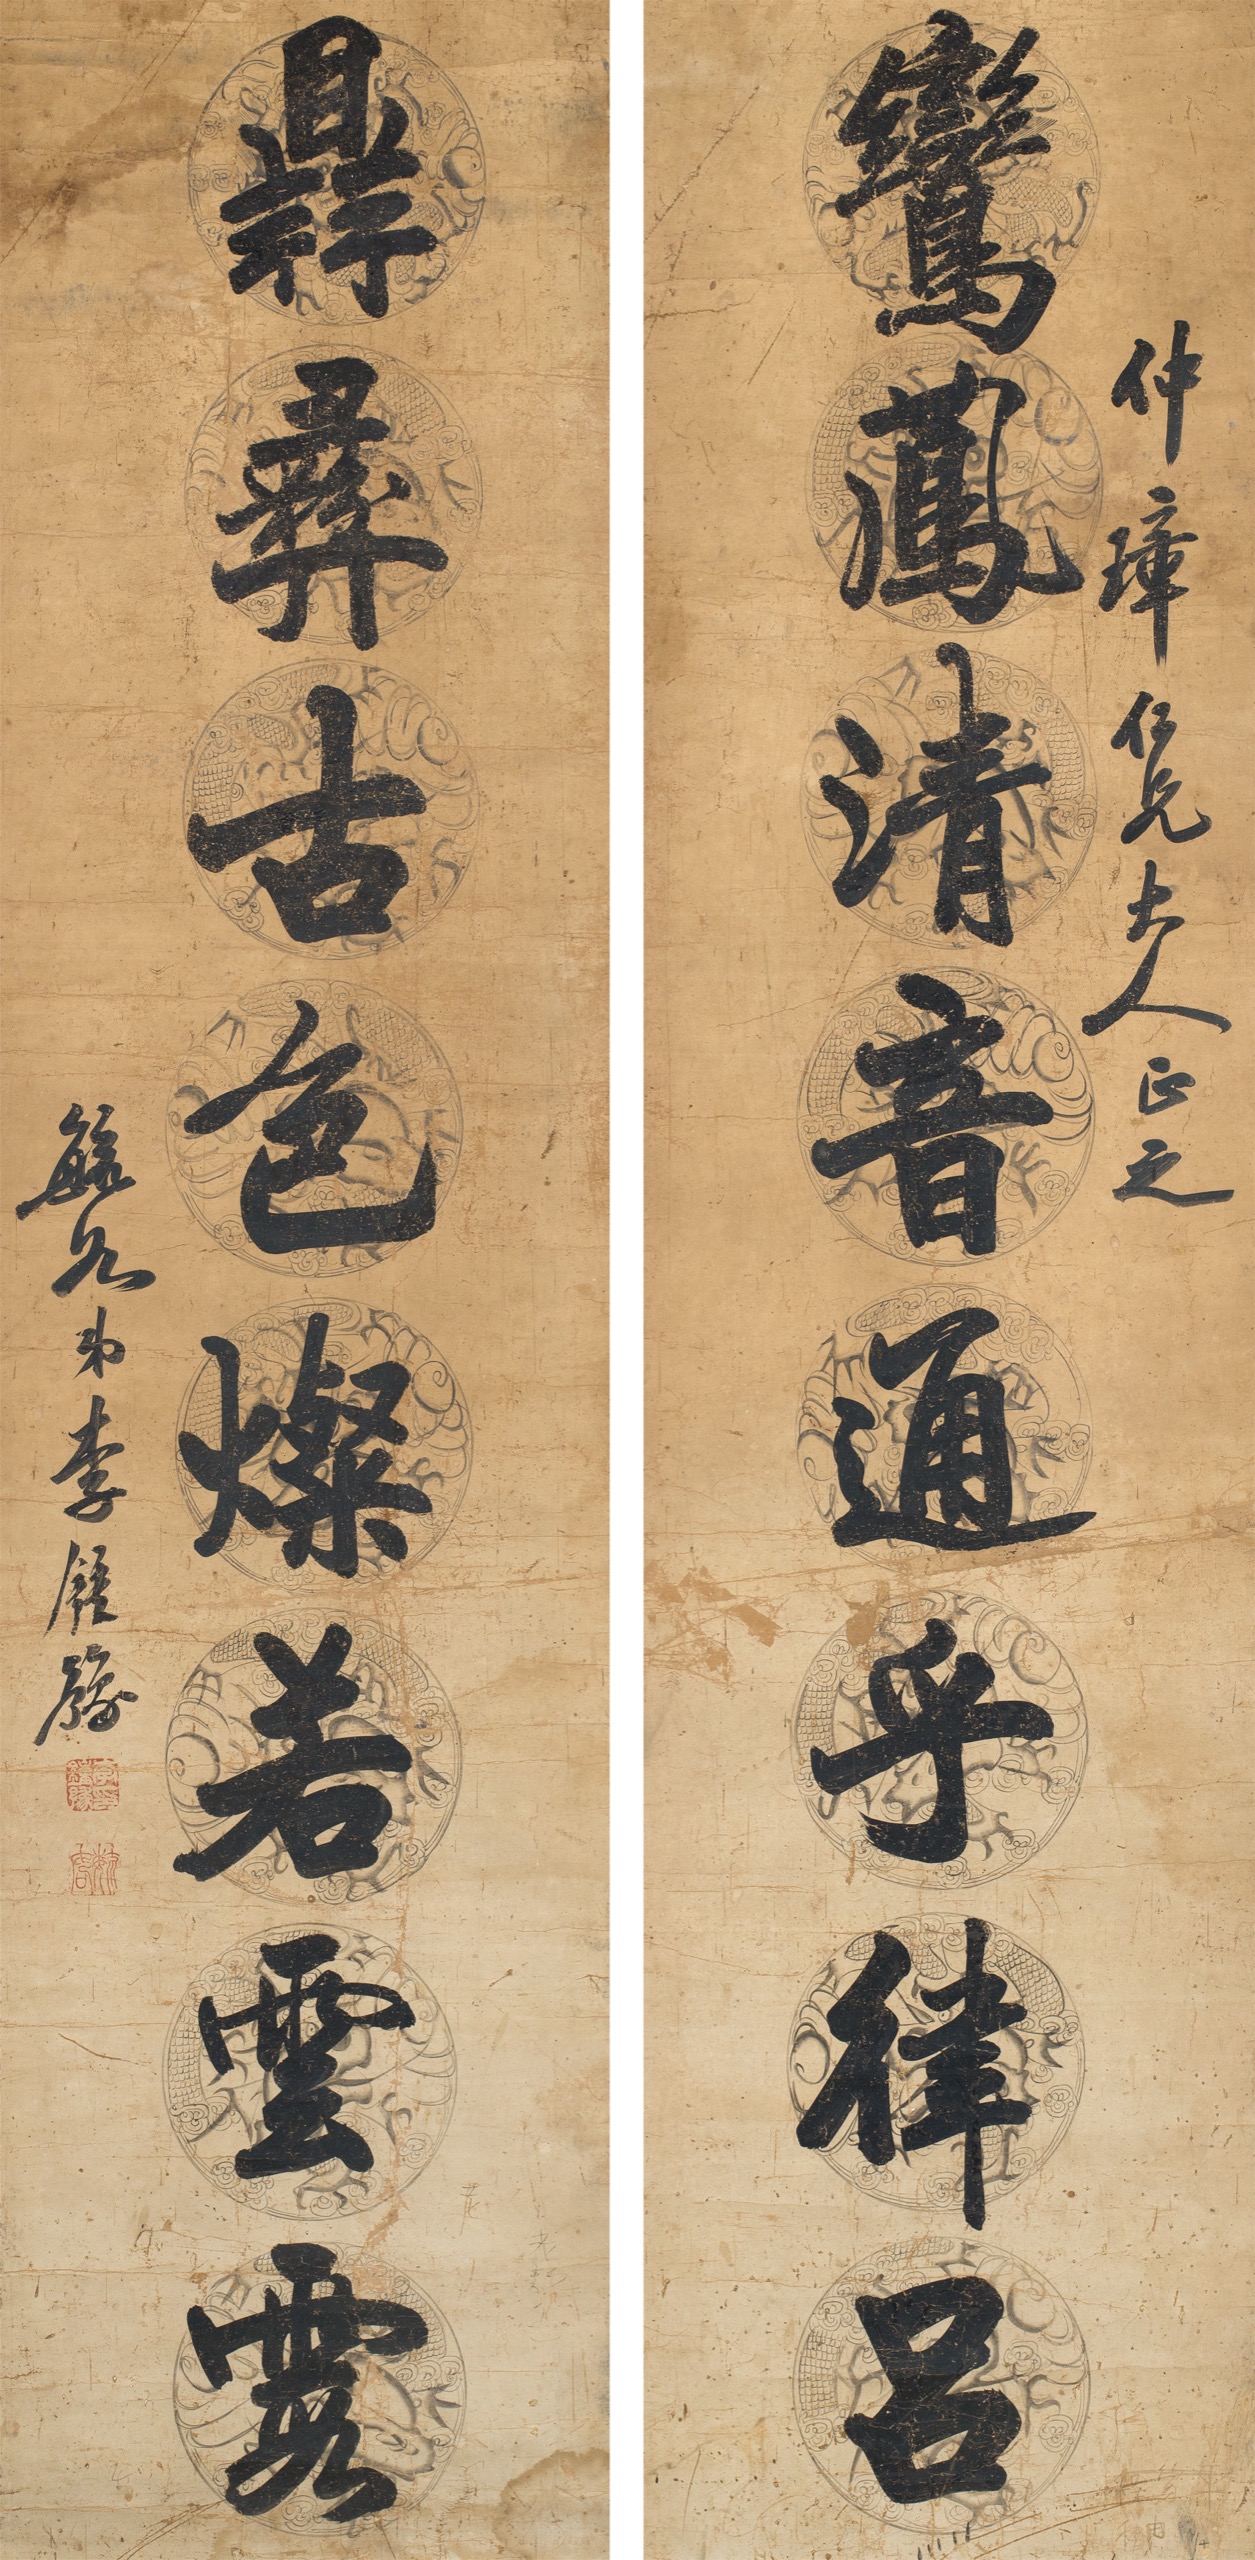 仲璋仁兄大人正之
鸞鳳清音通乎律呂
鼎彝古色燦若雲霞
李鍾豫